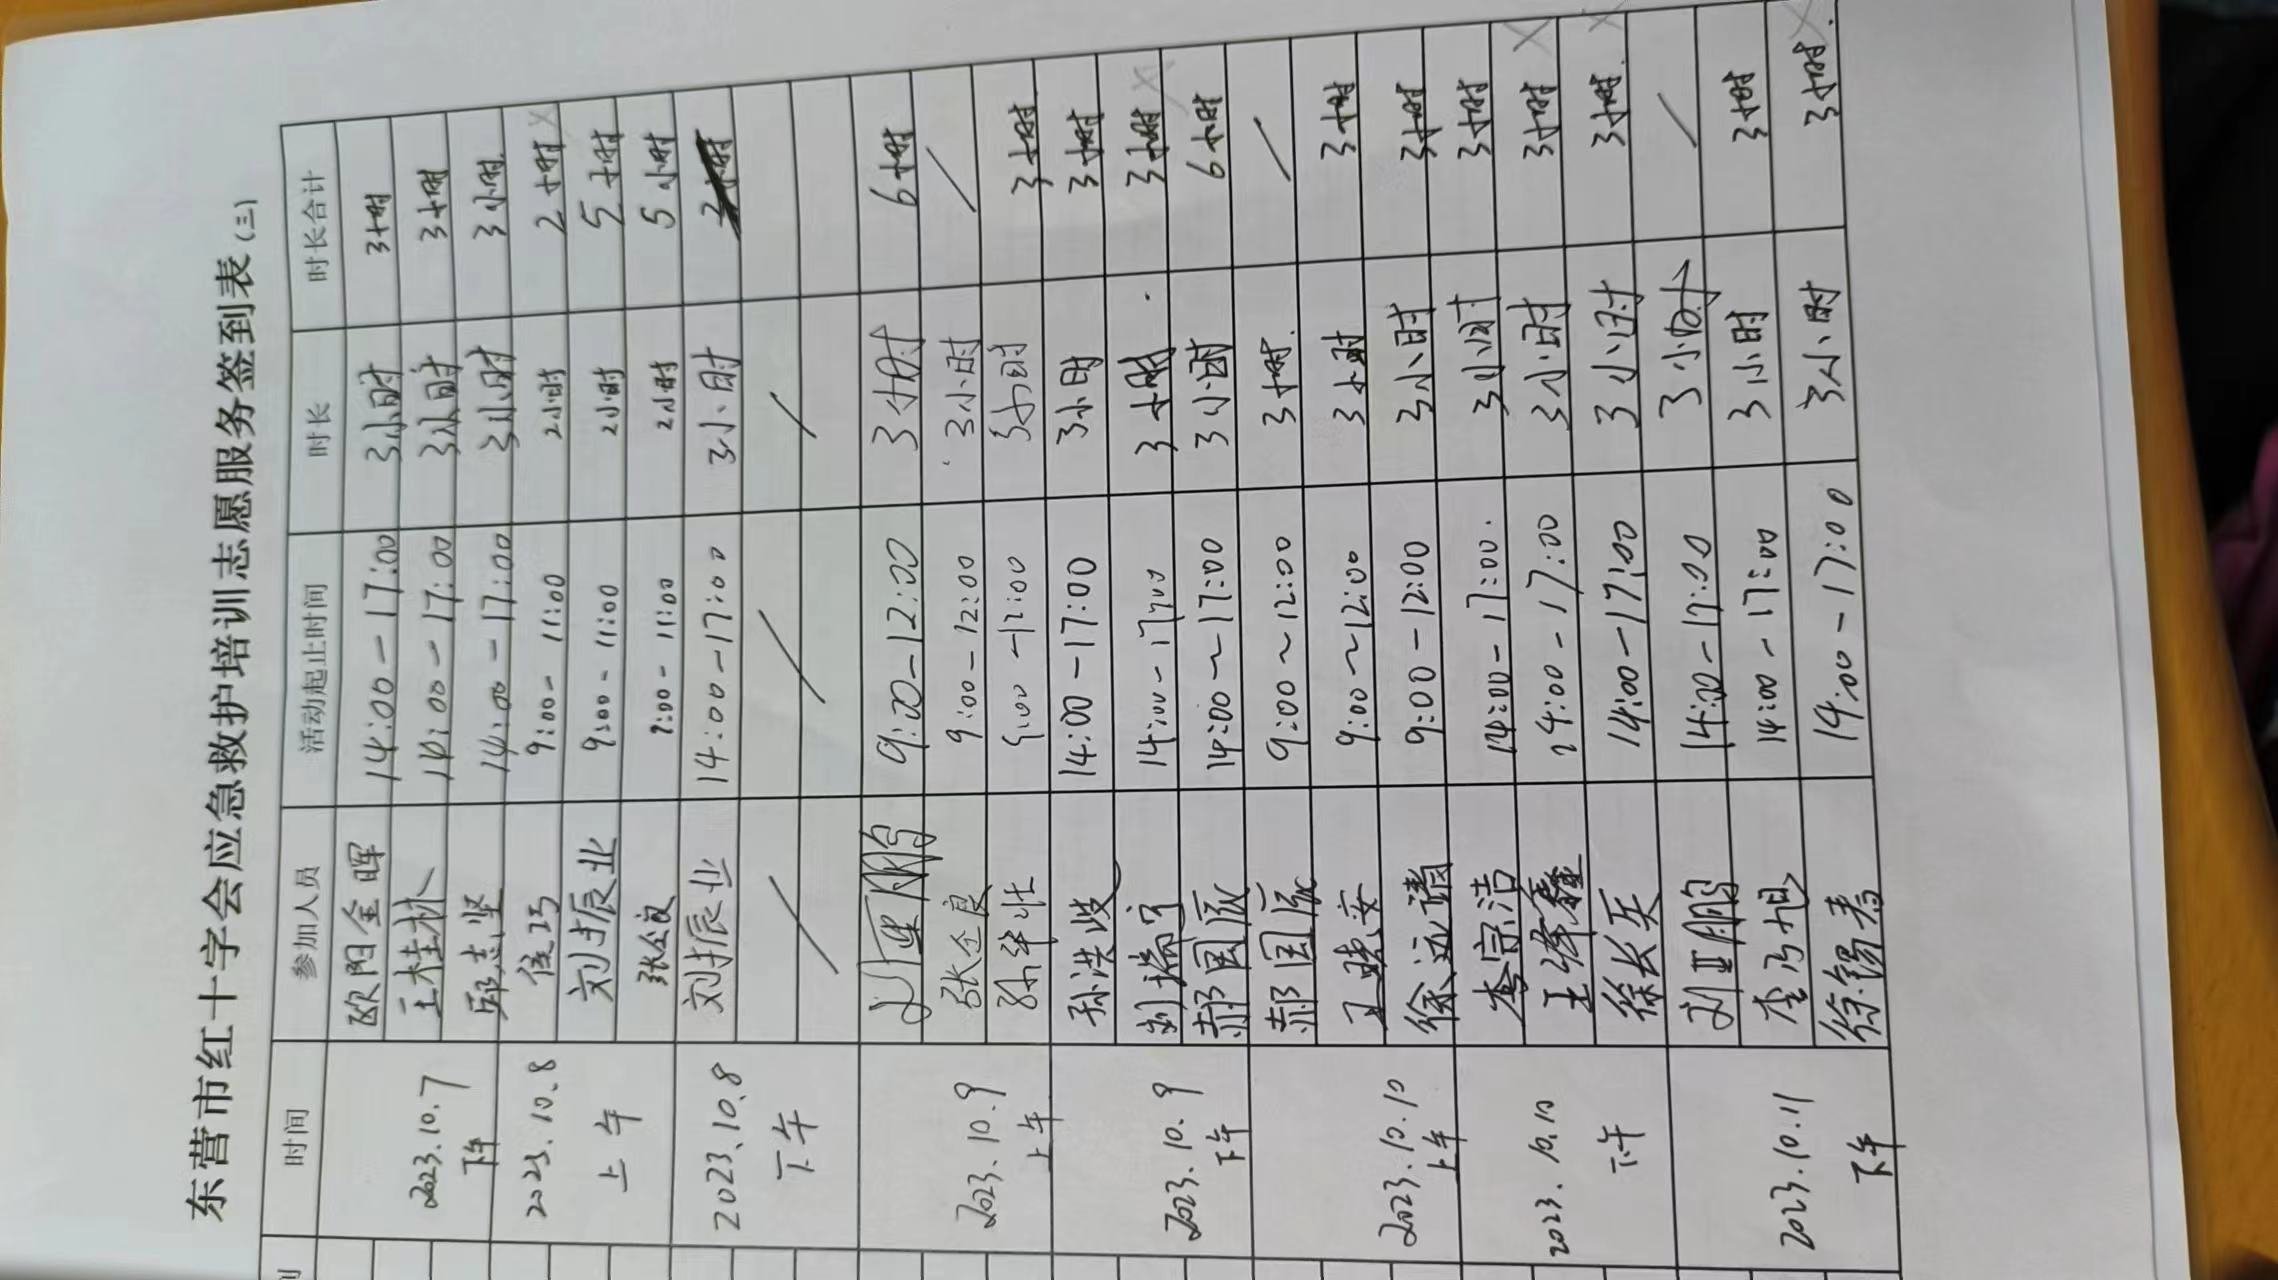 东营市红十字会应急救护培训志愿服务签到表(三)
时间 参加人员 活动起止时间 时长 时长合计
2023.10.7 下午
欧阳金晖 14:00-17:00 3小时 3小时
王桂林 14:00-17:00 3小时 3小时
邱志坚 14:00-17:00 3小时 3小时
2023.10.8 上午
侯巧 9:00-11:00 2小时 2小时
刘振业 9:00-11:00 2小时 5小时
张会良 9:00-11:00 2小时 5小时
2023.10.8 下午
刘振业 14:00-17:00 3小时
2023.10.9 上午
刘亚鹏 9:00-12:00 3小时 6小时
张会良 9:00-12:00 3小时
9:00-12:00 3小时 3小时
2023.10.9 下午
孙洪波 14:00-17:00 3小时 3小时
刘瑞宁 14:00-17:00 3小时 3小时
郝国庆 14:00~17:00 3小时 6小时
2023.10.10 上午
郝国庆 9:00~12:00 3小时
王晓安 9:00~12:00 3小时 3小时
徐远清 9:00-12:00 3小时 3小时
2023.10.10 下午
李宗洁 14:00-17:00. 3小时 3小时
王绪鑫 14:00-17:00 3小时 3小时
徐长兵 14:00-17:00 3小时 3小时.
2023.10.11 下午
刘亚鹏 14:00-17:00 3小时
李乃旭 14:00-17:00 3小时 3小时
徐锡春 14:00-17:00 3小时 3小时.